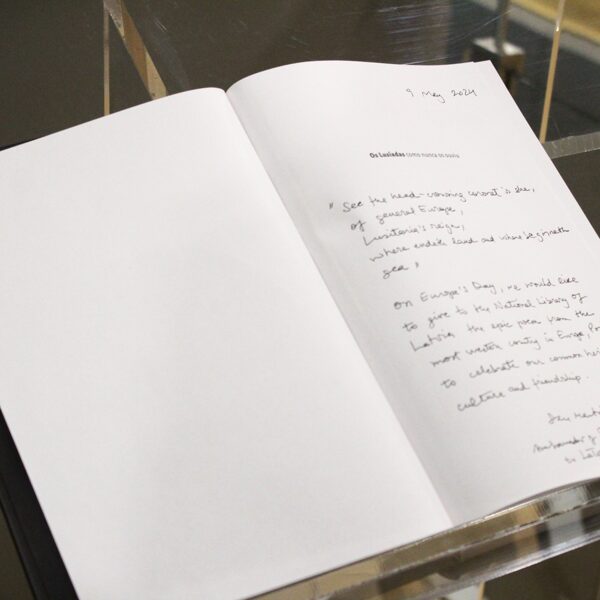 9 May 2024
Os Lusíadas como nunca os ouviu
" See the head-crowning coronet is she,
of general Europe,
Lusitania's reign,
where endeth land and where beginneth
sea "
On Europe's Day, we would like
to give to the National Library of
Latvia the epic poem from the
most western country in Europe,
to celebrate our common
culture and friendship.
Ambassador of
to